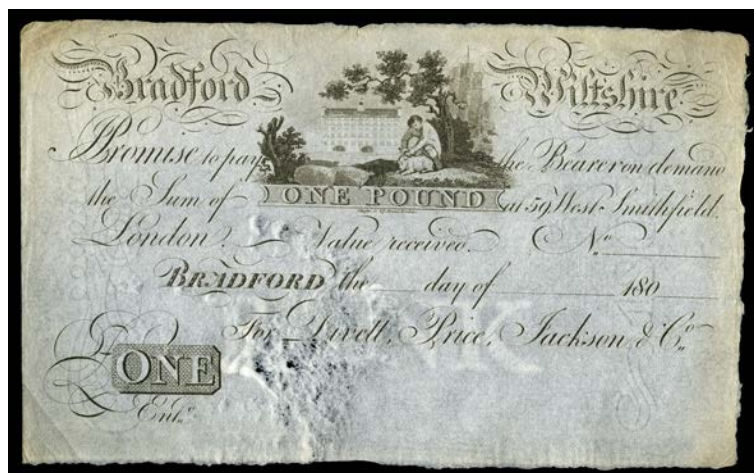 Bradford Wiltshire
Promise to pay the Bearer on demand
the Sum of ONE POUND at 59 West Smithfield
London. Value received. No
BRADFORD the day of 180
For Divett, Price, Jackson & Co.
ONE
Entd.